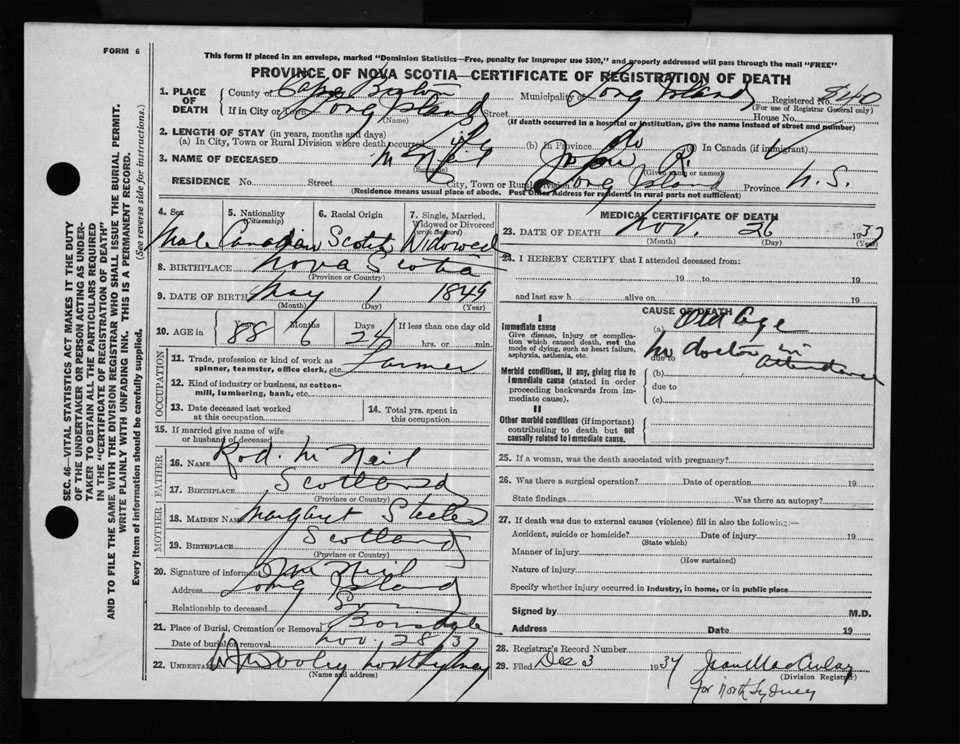 FORM 6
This form if placed in an envelope, marked "Dominion Statistics—Free, penalty for improper use $300," and properly addressed will pass through the mail "FREE"
PROVINCE OF NOVA SCOTIA—CERTIFICATE OF REGISTRATION OF DEATH
SEC. 46—VITAL STATISTICS ACT MAKES IT THE DUTY
OF THE UNDERTAKER OR PERSON ACTING AS UNDER-
TAKER TO OBTAIN ALL THE PARTICULARS REQUIRED
IN THE "CERTIFICATE OF REGISTRATION OF DEATH"
AND TO FILE THE SAME WITH THE DIVISION REGISTRAR WHO SHALL ISSUE THE BURIAL PERMIT.
WRITE PLAINLY WITH UNFADING INK. THIS IS A PERMANENT RECORD.
Every item of information should be carefully supplied. (See reverse side for instructions.)
1. PLACE OF DEATH County of Cape Breton Municipality of Long Island Registered No.
(For use of Registrar General only)
If in City or Town Long Island House No.
(Name) (If death occurred in a hospital or institution, give the name instead of street and number)
2. LENGTH OF STAY (in years, months and days)
(a) In City, Town or Rural Division where death occurred life (b) In Province do (c) In Canada (if immigrant)
3. NAME OF DECEASED McNeil John R.
(Given name or names)
RESIDENCE No. Street City, Town or Rural Division Long Island Province N.S.
(Residence means usual place of abode. Post Office Address for residents in rural parts not sufficient)
4. Sex 5. Nationality (Citizenship) 6. Racial Origin 7. Single, Married, Widowed or Divorced
Male Canadian Scotch Widowed
8. BIRTHPLACE Nova Scotia
(Province or Country)
9. DATE OF BIRTH May 1 1849
(Month) (Day) (Year)
10. AGE in Years Months Days If less than one day old
88 6 24 hrs. or min.
OCCUPATION
11. Trade, profession or kind of work as Farmer
spinner, teamster, office clerk, etc.
12. Kind of industry or business, as cotton-
mill, lumbering, bank, etc.
13. Date deceased last worked
at this occupation
14. Total yrs. spent in
this occupation
15. If married give name of wife
or husband of deceased
FATHER
16. NAME Rod. McNeil
17. BIRTHPLACE Scotland
(Province or Country)
MOTHER
18. MAIDEN NAME Margaret Steele
19. BIRTHPLACE Scotland
(Province or Country)
20. Signature of informant McNeil
Address Long Island
Relationship to deceased Son
21. Place of Burial, Cremation or Removal Boisdale
Date of burial or removal Nov. 28/37
22. UNDERTAKER W J Dooley North Sydney
(Name and address)
MEDICAL CERTIFICATE OF DEATH
23. DATE OF DEATH Nov. 26 1937
(Month) (Day) (Year)
24. I HEREBY CERTIFY that I attended deceased from:
19 to 19
and last saw h alive on 19
CAUSE OF DEATH
I
Immediate cause (a) Old Age
Give disease, injury or complica-
tion which caused death, not the
mode of dying, such as heart failure,
asphyxia, asthenia, etc.
due to No doctor in attendance
Morbid conditions, if any, giving rise to
immediate cause (stated in order
proceeding backwards from im-
mediate cause).
(b)
due to
(c)
II
Other morbid conditions (if important)
contributing to death but not
causally related to immediate cause.
25. If a woman, was the death associated with pregnancy?
26. Was there a surgical operation? Date of operation 193
State findings Was there an autopsy?
27. If death was due to external causes (violence) fill in also the following:—
Accident, suicide or homicide? Date of injury 19
(State which)
Manner of injury
(How sustained)
Nature of injury
Specify whether injury occurred in industry, in home, or in public place
Signed by M.D.
Address Date 19
28. Registrar's Record Number
29. Filed Dec 3 1937 Jean MacAulay
(Division Registrar)
for North Sydney